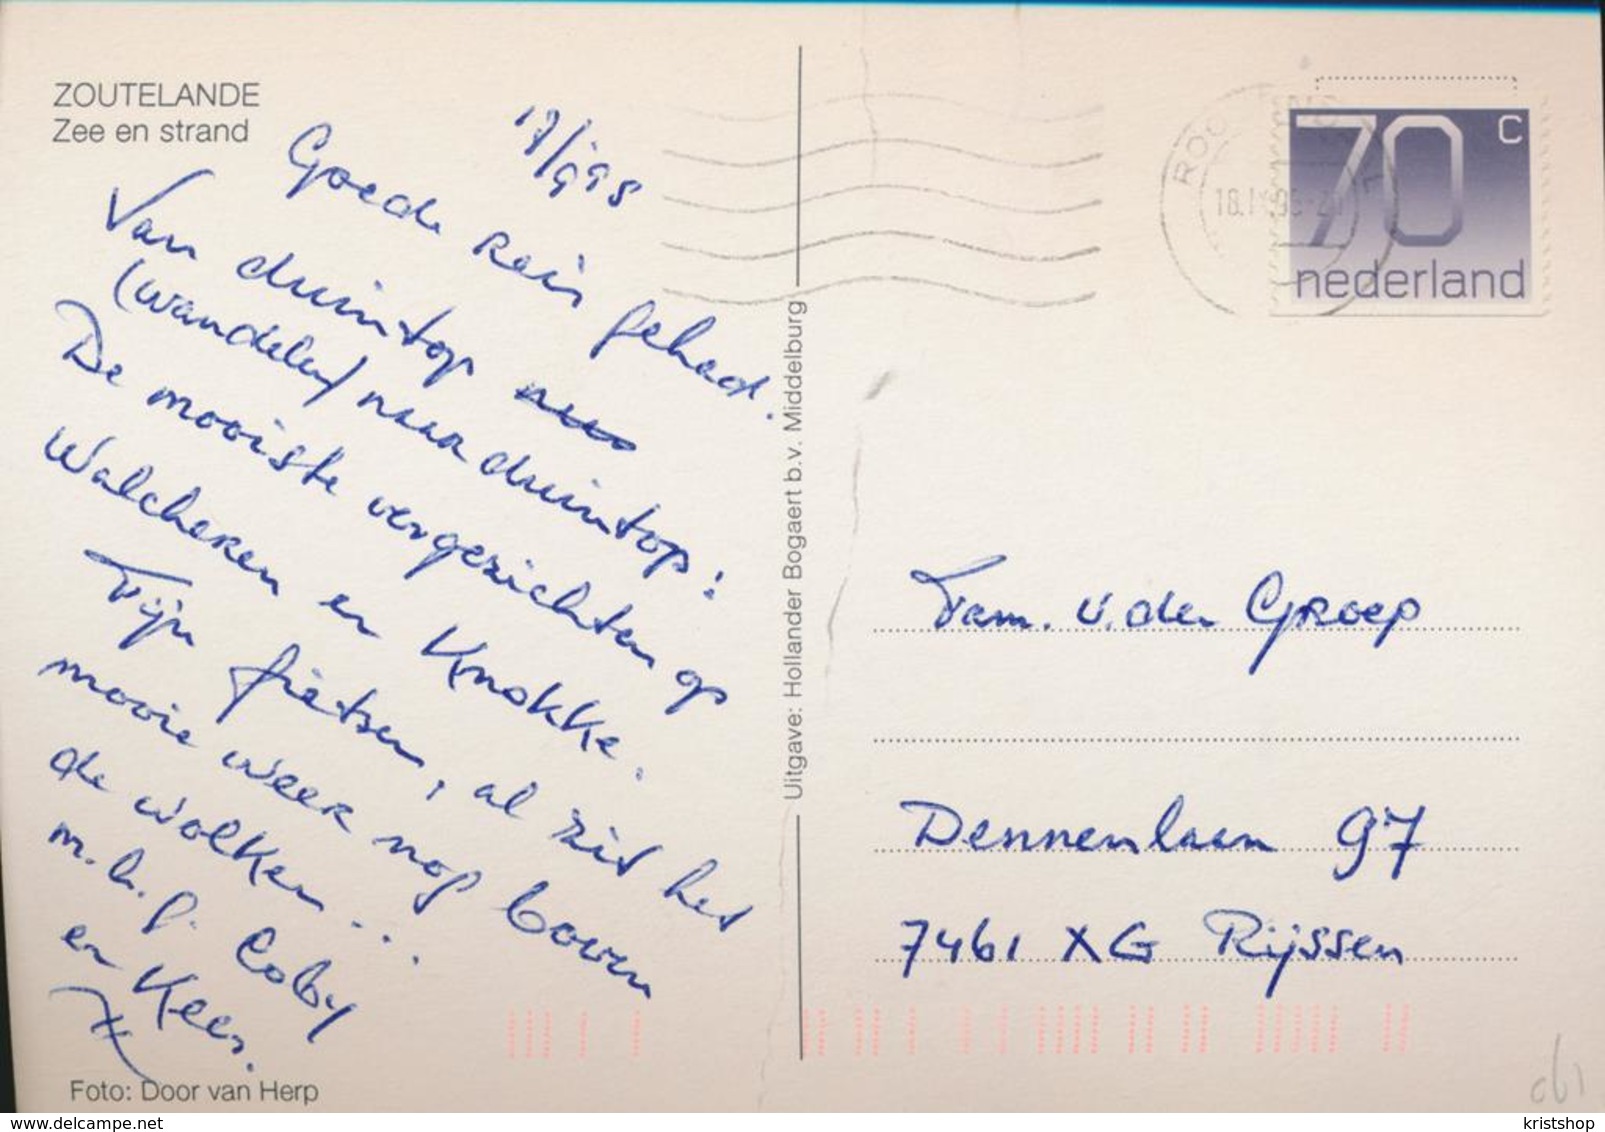 ZOUTELANDE
Zee en strand
17/9 '95
Goede reis gehad.
Van duintop
(wandelen) naar duintop:
De mooiste vergezichten op
Walcheren en Knokke.
Fijn fietsen, al zit het
mooie weer nog boven
de wolken...
m.h.g. Coby
en Kees.
Foto: Door van Herp
Uitgave: Hollander Bogaert b.v. Middelburg
70 c
nederland
Fam. v. der Groep
Dennenlaan 97
7461 XG Rijssen
061
kristshop